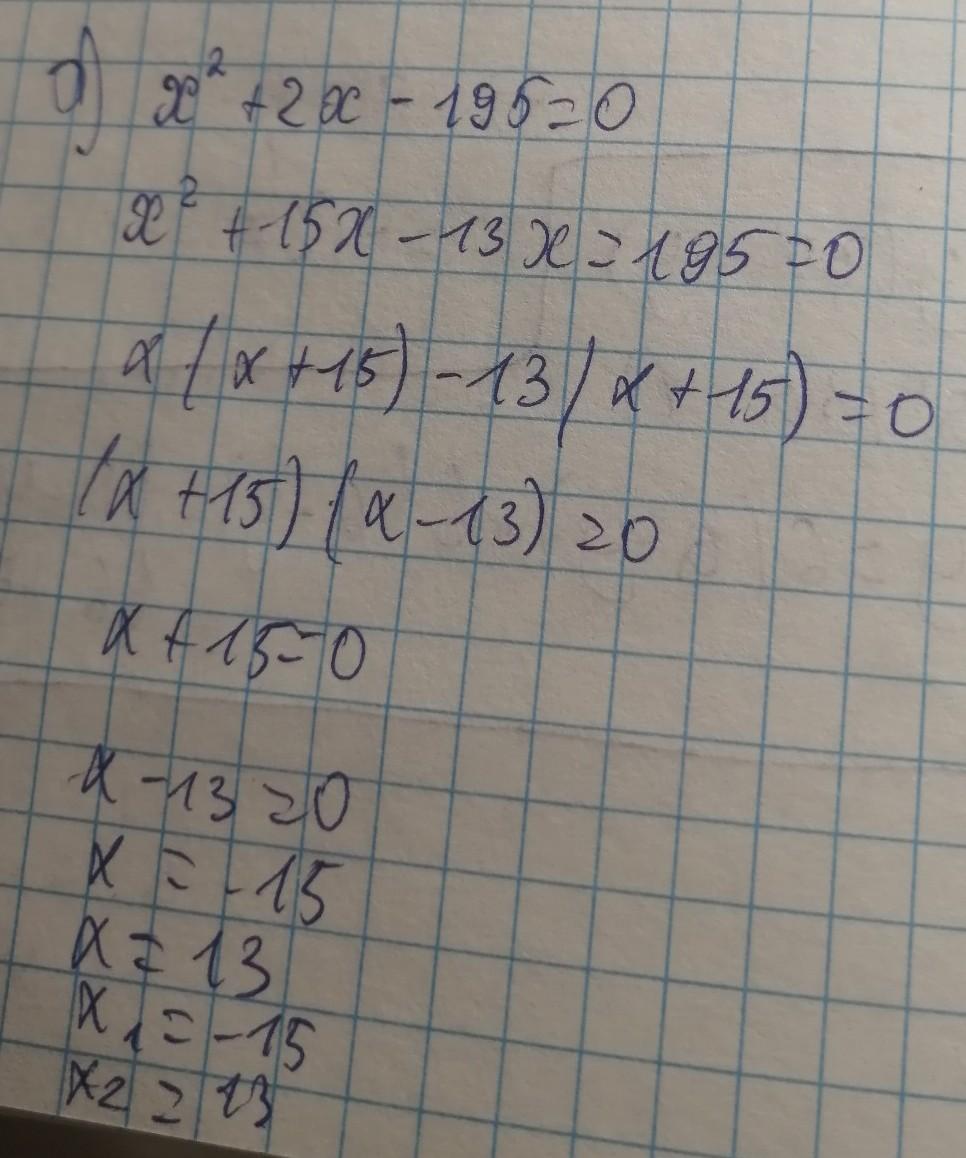 а) x² + 2x - 195 = 0
x² + 15x - 13x = 195 = 0
x(x + 15) - 13(x + 15) = 0
(x + 15)(x - 13) = 0
x + 15 = 0
x - 13 = 0
x = -15
x = 13
x₁ = -15
x₂ = 13